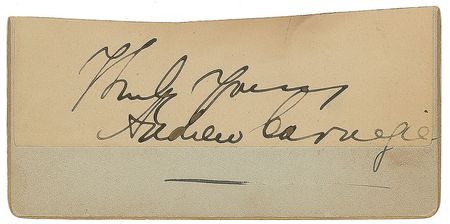 Truly Yours,
Andrew Carnegie